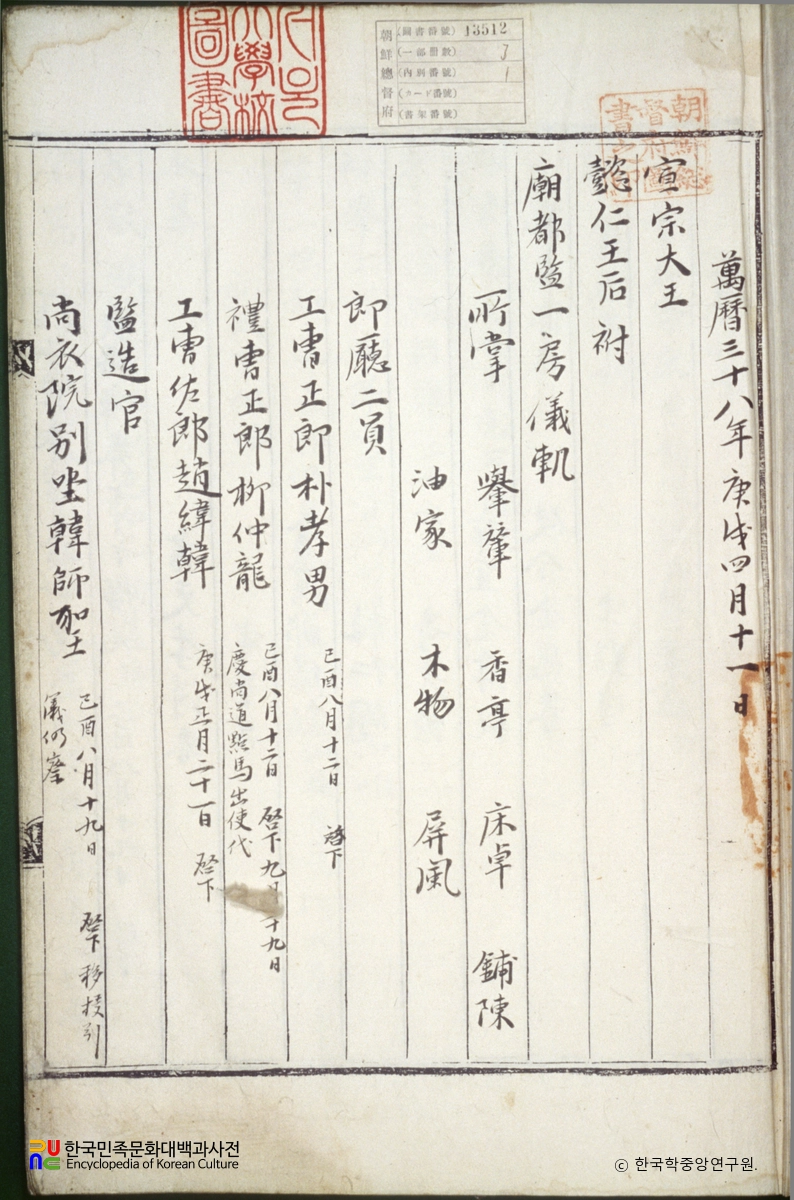 萬曆三十八年庚戌四月十一日
宣宗大王
懿仁王后祔
廟都監一房儀軌
所掌 轝輦 香亭 床卓 鋪陳
油家 木物 屛風
郎廳二員
工曹正郎朴孝男 己酉八月十二日 啓下
禮曹正郎柳仲龍 己酉八月十二日 啓下九月十九日
慶尙道點馬出使代
工曹佐郎趙緯韓 庚戌正月二十一日 啓下
監造官
尙衣院別坐韓師聖 己酉八月十九日 啓下移
儀仍察
朝鮮總督府
(圖書番號) 13512
(一部冊數) 3
(內別番號) 1
(カード番號)
(書架番號)
大學校
圖書
한국민족문화대백과사전
Encyclopedia of Korean Culture
© 한국학중앙연구원.